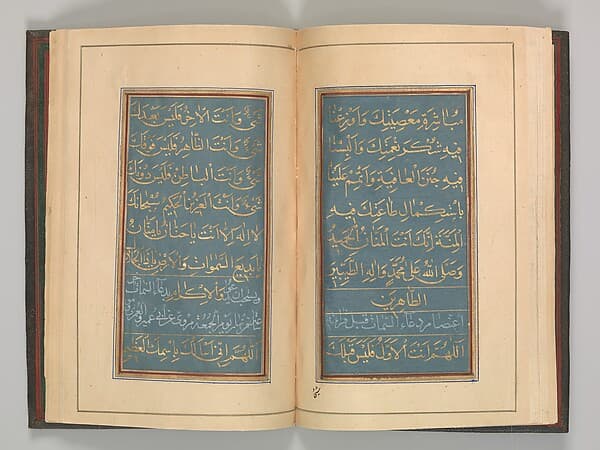 مباشرة معصيتك واوزعنا
فيه شكر نعمتك والبسنا
فيه جنن العافية واتمم علينا
باستكمال طاعتك فيه
المنة انك انت المنان الحميد
وصلى الله على محمد واله الطيبين
الطاهرين
دعاء السمات قبل
اللهم انت الاول فليس قبلك
شيء
شيء وانت الاخر فليس بعدك
شيء وانت الظاهر فليس فوقك
شيء وانت الباطن فليس دونك
شيء وانت العزيز الحكيم سبحانك
لا اله الا انت يا حنان يا منان
يا بديع السموات والارض يا ذا الجلال
والاكرام دعاء السمات
يوم الجمعة مروي عن ابي عمرو
اللهم اني اسئلك باسمك العظيم